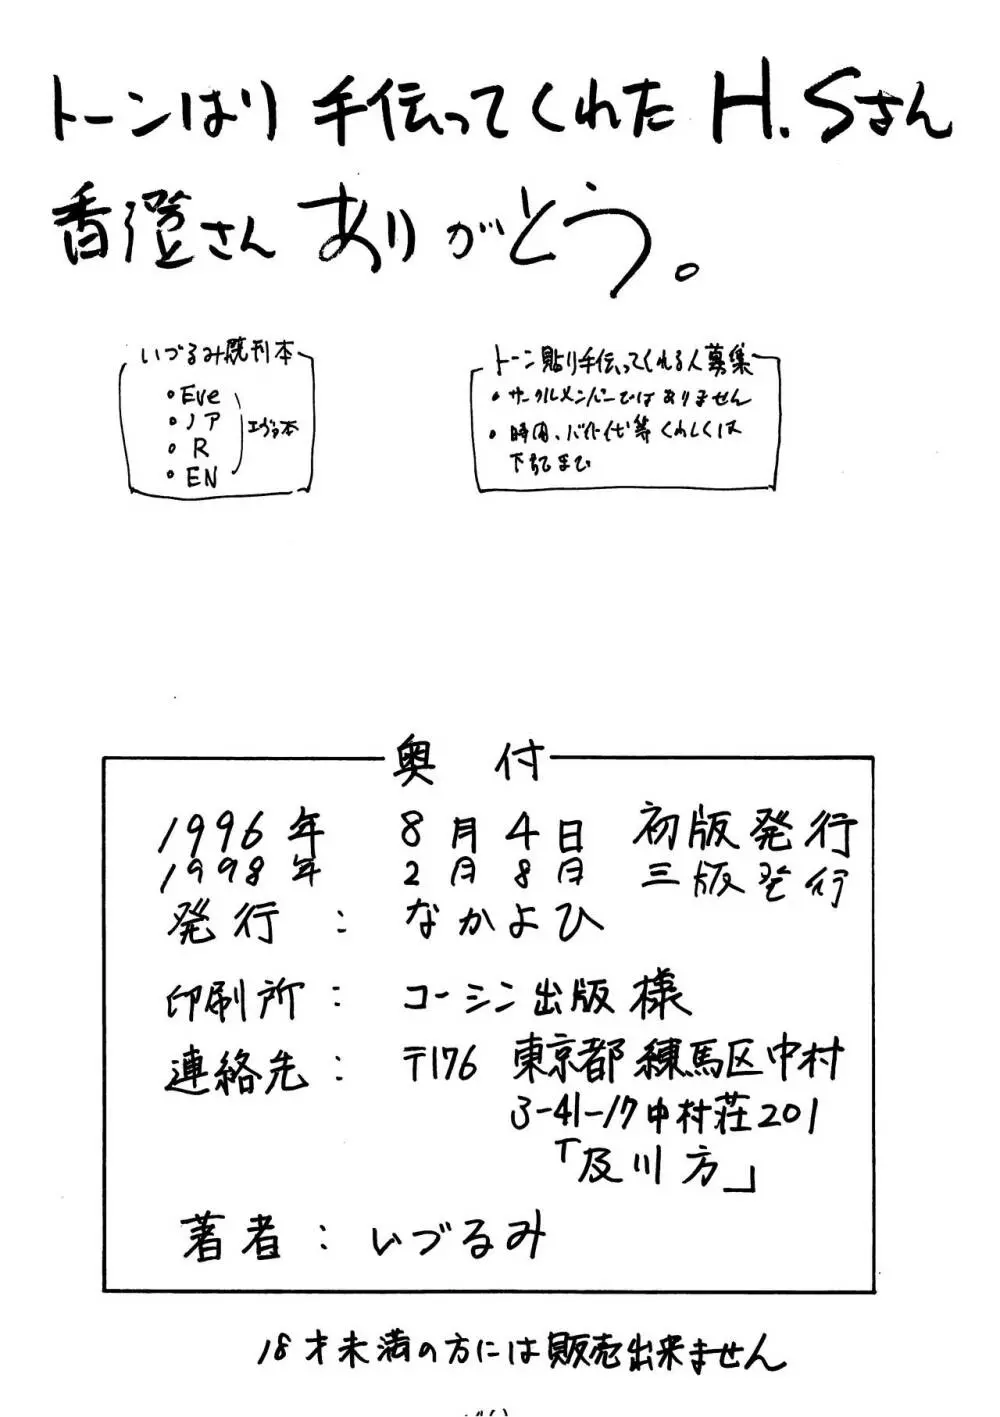 トーンはり 手伝ってくれた H.Sさん
香澄さん ありがとう。
いづるみ既刊本
• Eve
• ノア
• R
• EN
エヴァ本
トーン貼り手伝ってくれる人募集
• サークルメンバーではありません
• 時間、バイト代等くわしくは
下記まで
奥付
1996年 8月4日 初版発行
1998年 2月8日 三版発行
発行 : なかよひ
印刷所 : コーシン出版様
連絡先 : 〒176 東京都練馬区中村
3-41-17中村荘201
「及川方」
著者 : いづるみ
18才未満の方には販売出来ません